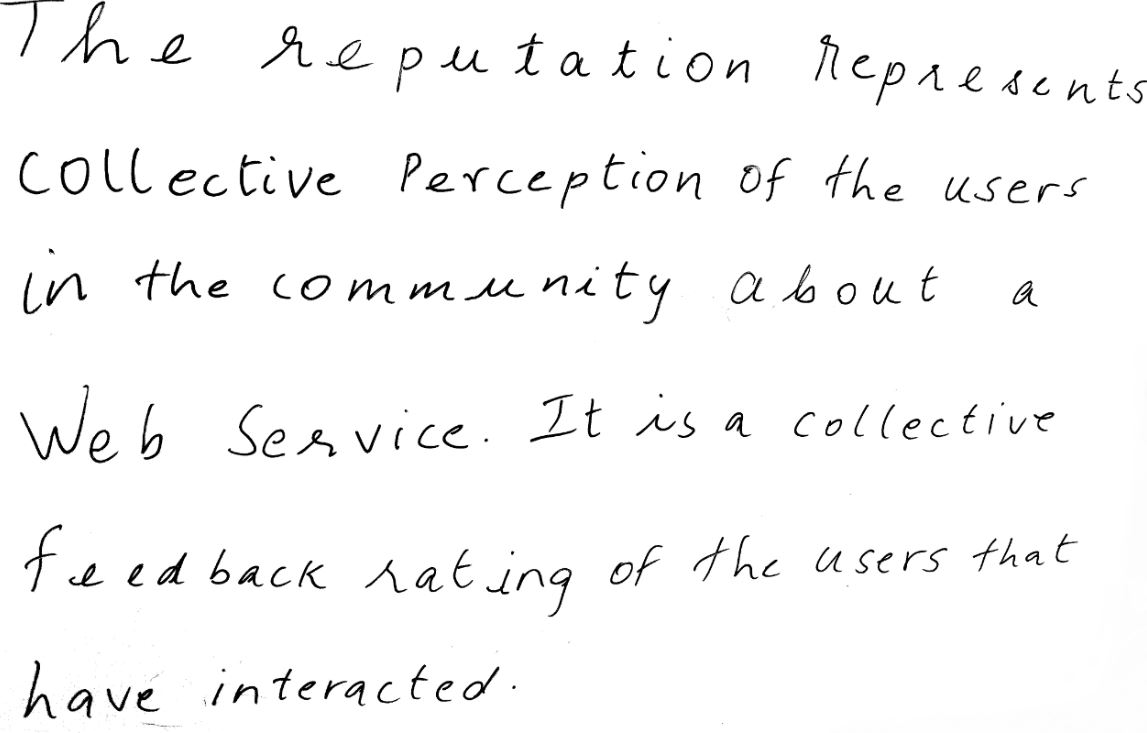 The reputation represents
collective Perception of the users
in the community about a
Web Service. It is a collective
feedback rating of the users that
have interacted.